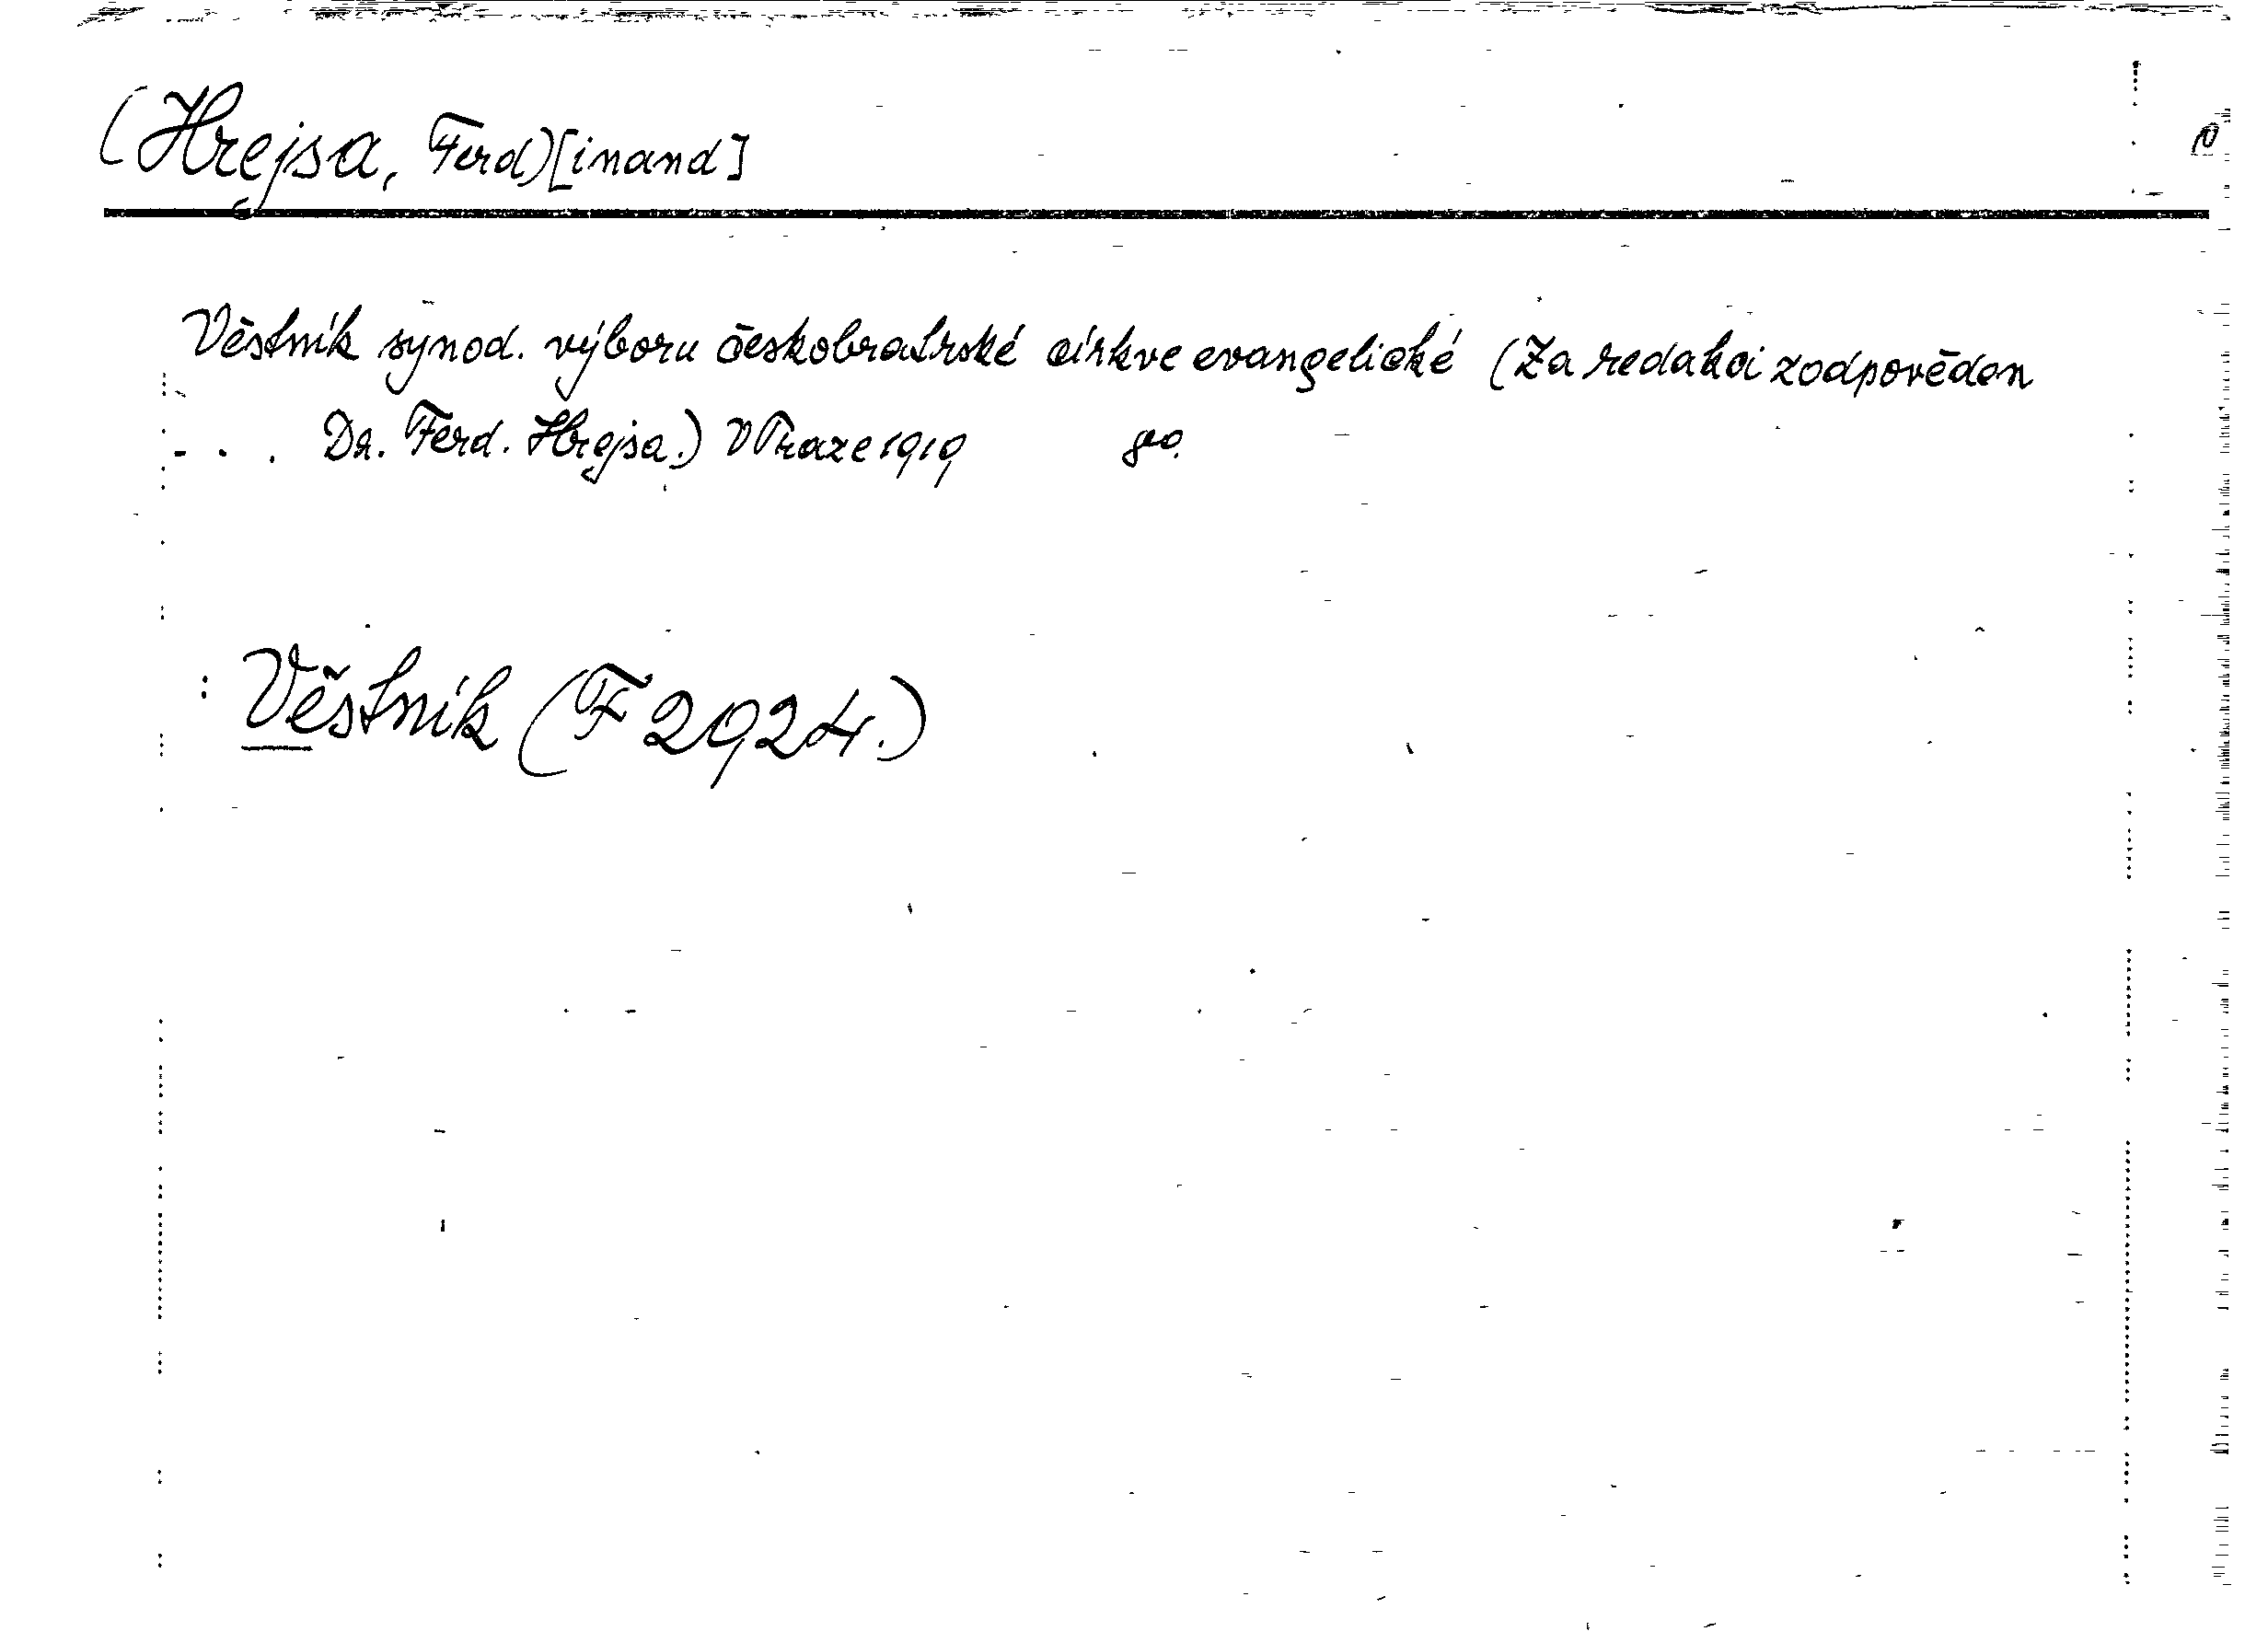 (Hrejsa, Ferd)[inand]
Věstník synod. výboru českobratrské církve evangelické (Za redakci zodpověden
- . . Dr. Ferd. Hrejsa.) V Praze 1919 8º.
: Věstník (F 2924.)